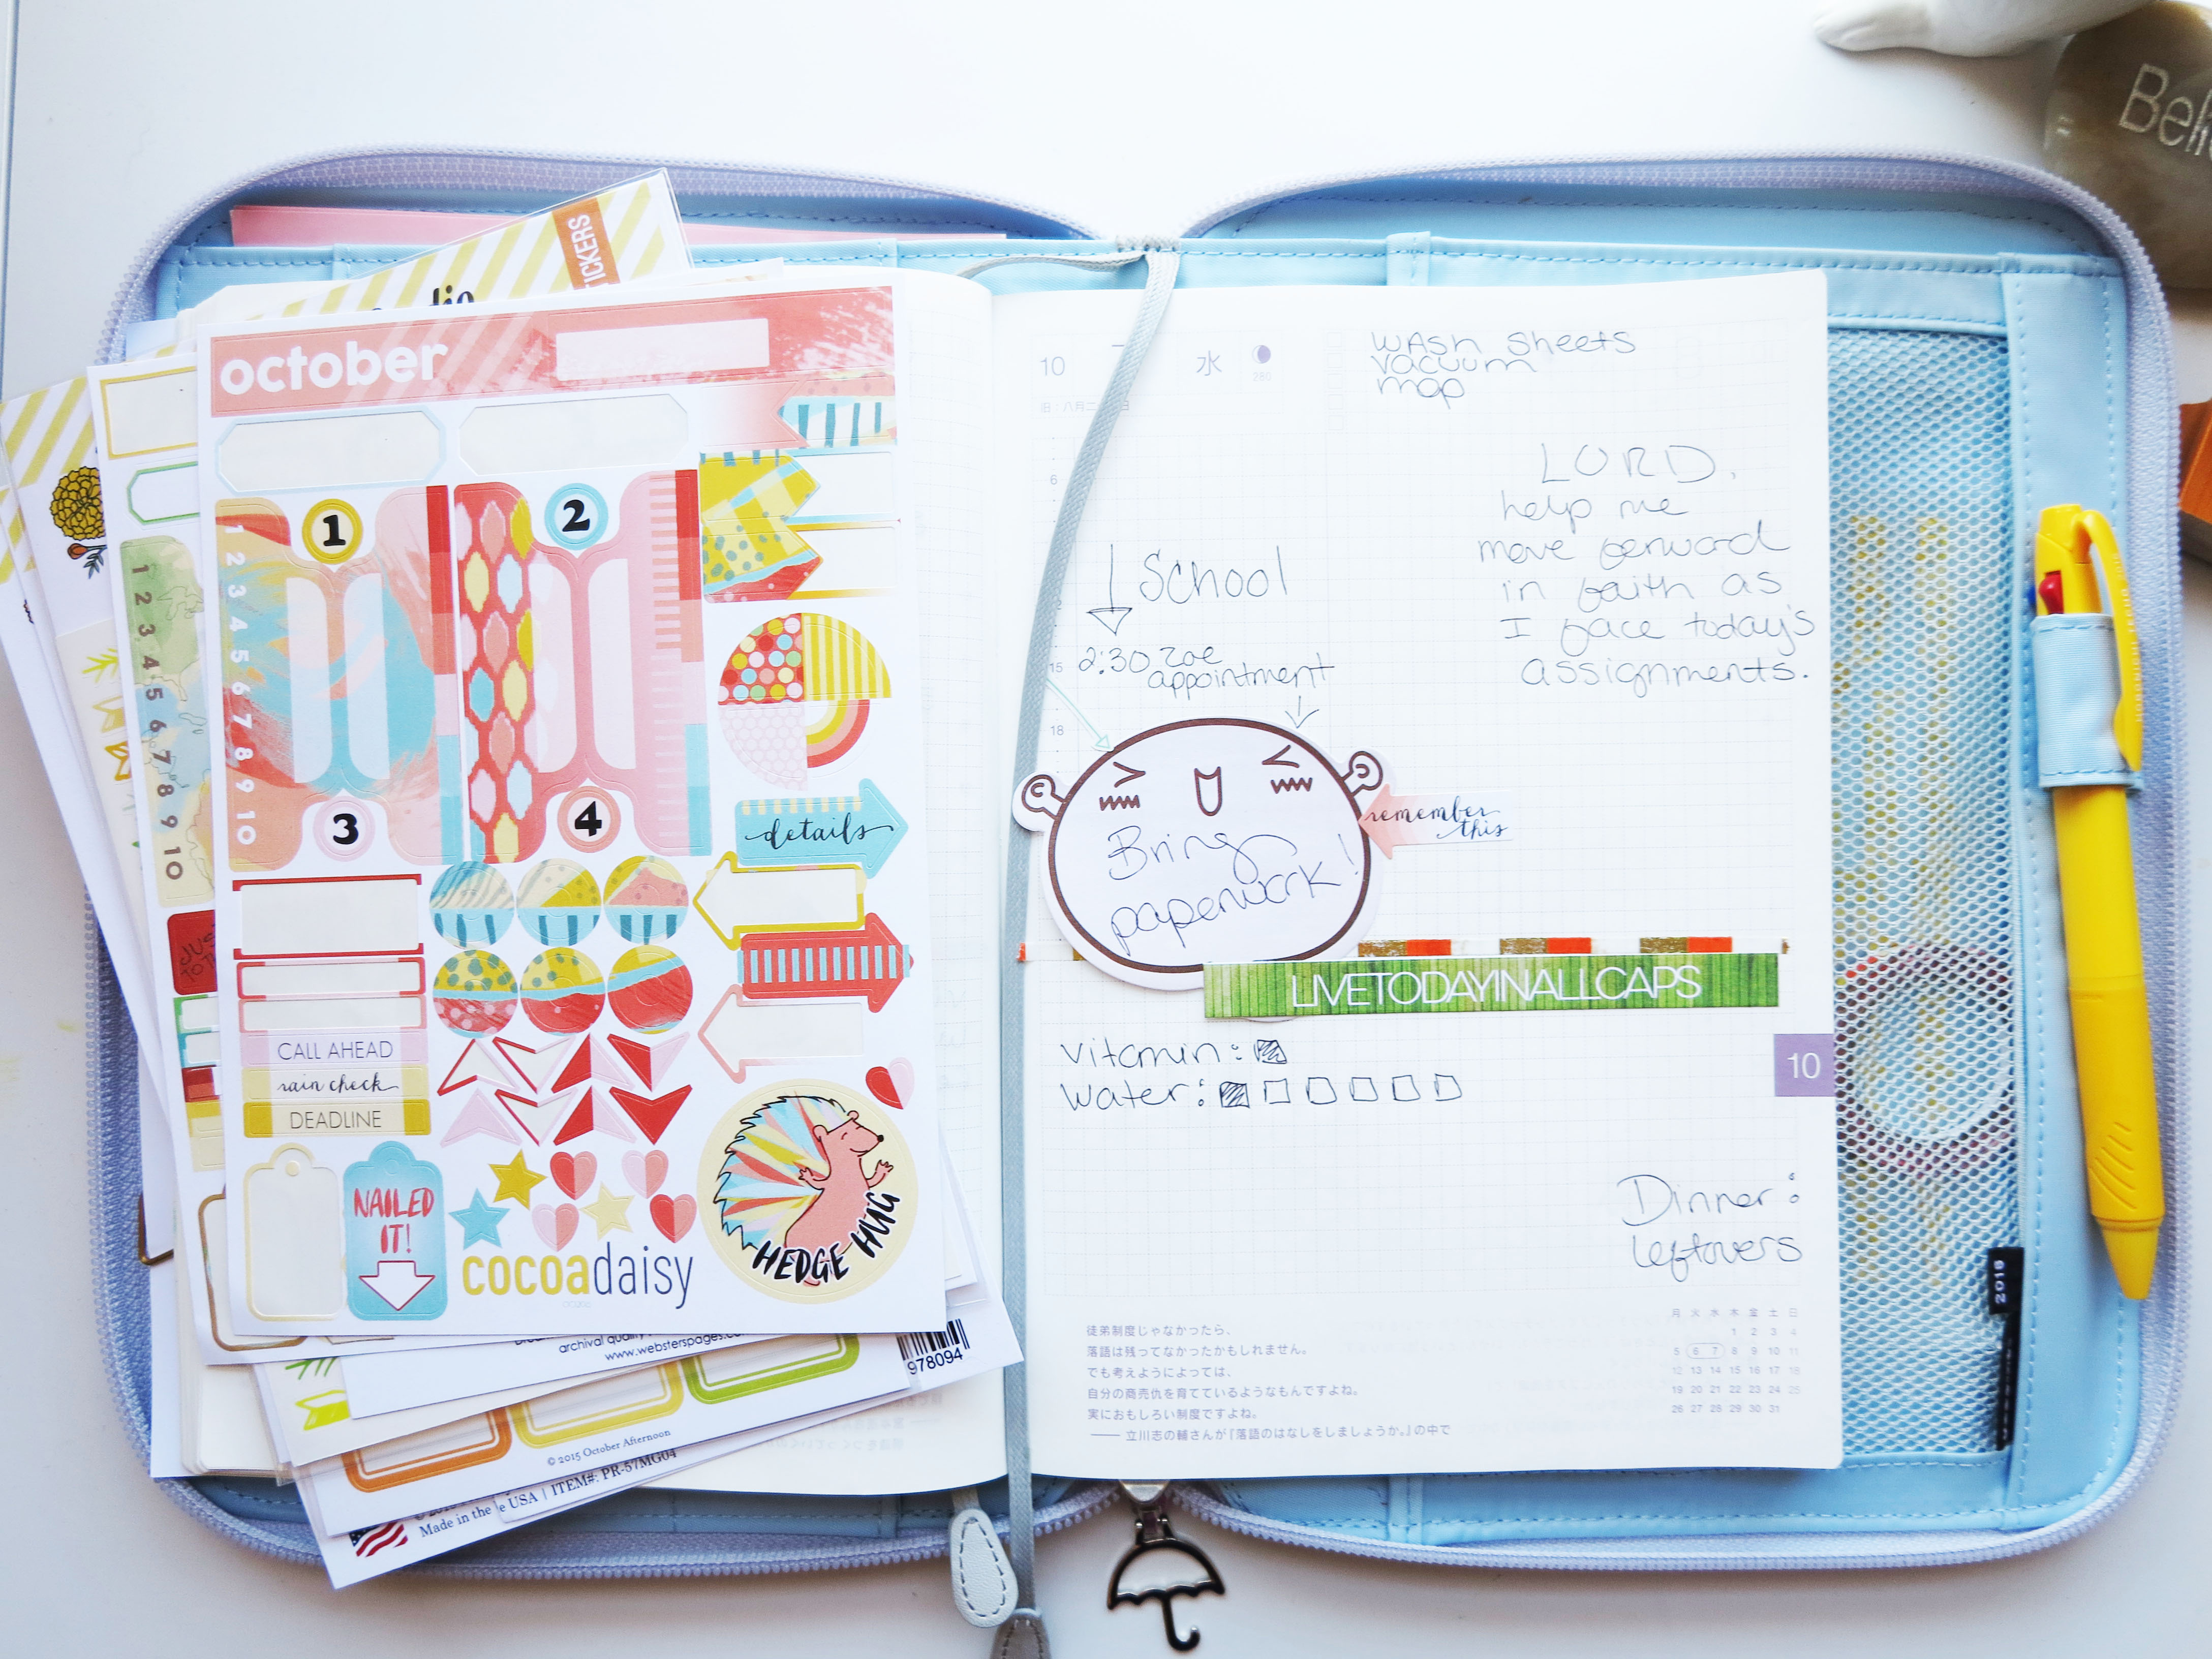 Beli
STICKERS
october
1
2
1 2 3 4 5 6 7 8 9 10
1 2 3 4 5 6 7 8 9 10
3
4
details
CALL AHEAD
rain check
DEADLINE
NAILED
IT!
cocoadaisy
HEDGE HUG
archival quality
www.websterspages.com
978094
© 2015 October Afternoon
ITEM#: PR-57MG04
Made in the USA
10
水
280
wash sheets
vacuum
mop
LORD,
help me
move forward
in faith as
I face today's
assignments.
6
School
15
2:30 Zoe
appointment
18
Bring
paperwork!
remember
this
LIVETODAYINALLCAPS
vitamin:
water:
10
Dinner:
leftovers
月 火 水 木 金 土 日
1 2 3 4
5 6 7 8 9 10 11
12 13 14 15 16 17 18
19 20 21 22 23 24 25
26 27 28 29 30 31
徒弟制度じゃなかったら、
落語は残ってなかったかもしれません。
でも考えようによっては、
自分の商売仇を育てているようなもんですよね。
実におもしろい制度ですよね。
―― 立川志の輔さんが『落語のはなしをしましょうか。』の中で